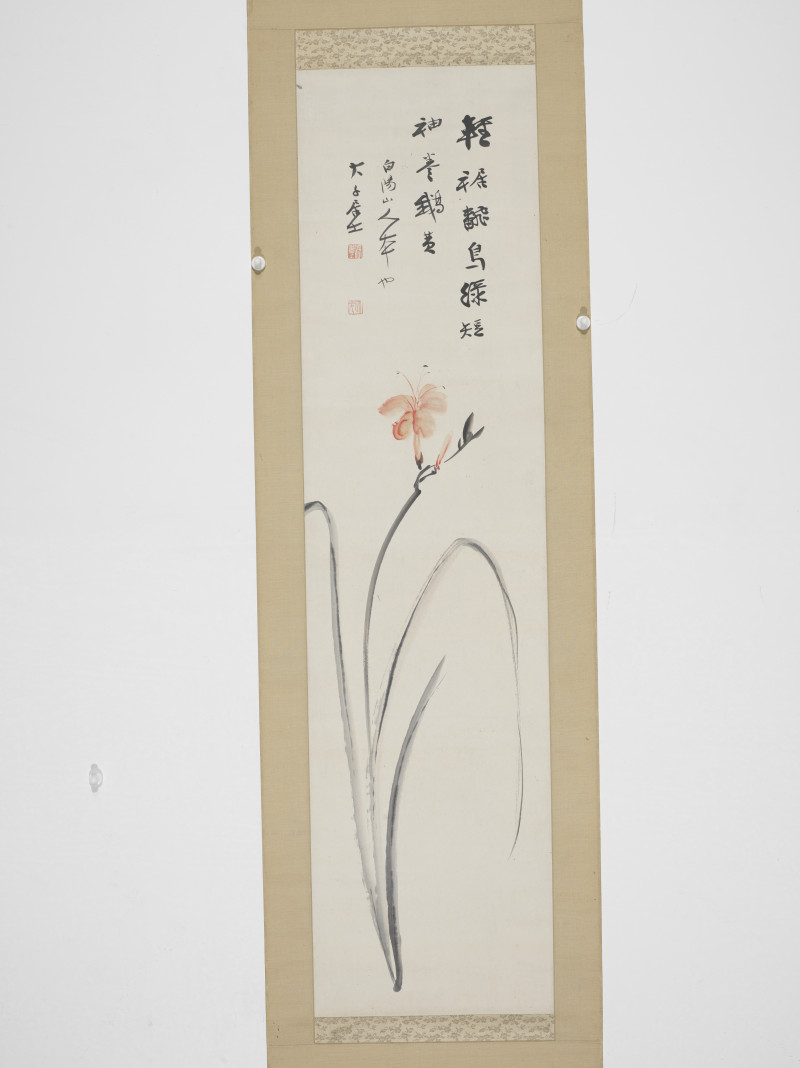 輕裾飜鳥綠短
袖卷鵝黃
白陽山人本也
大千居士